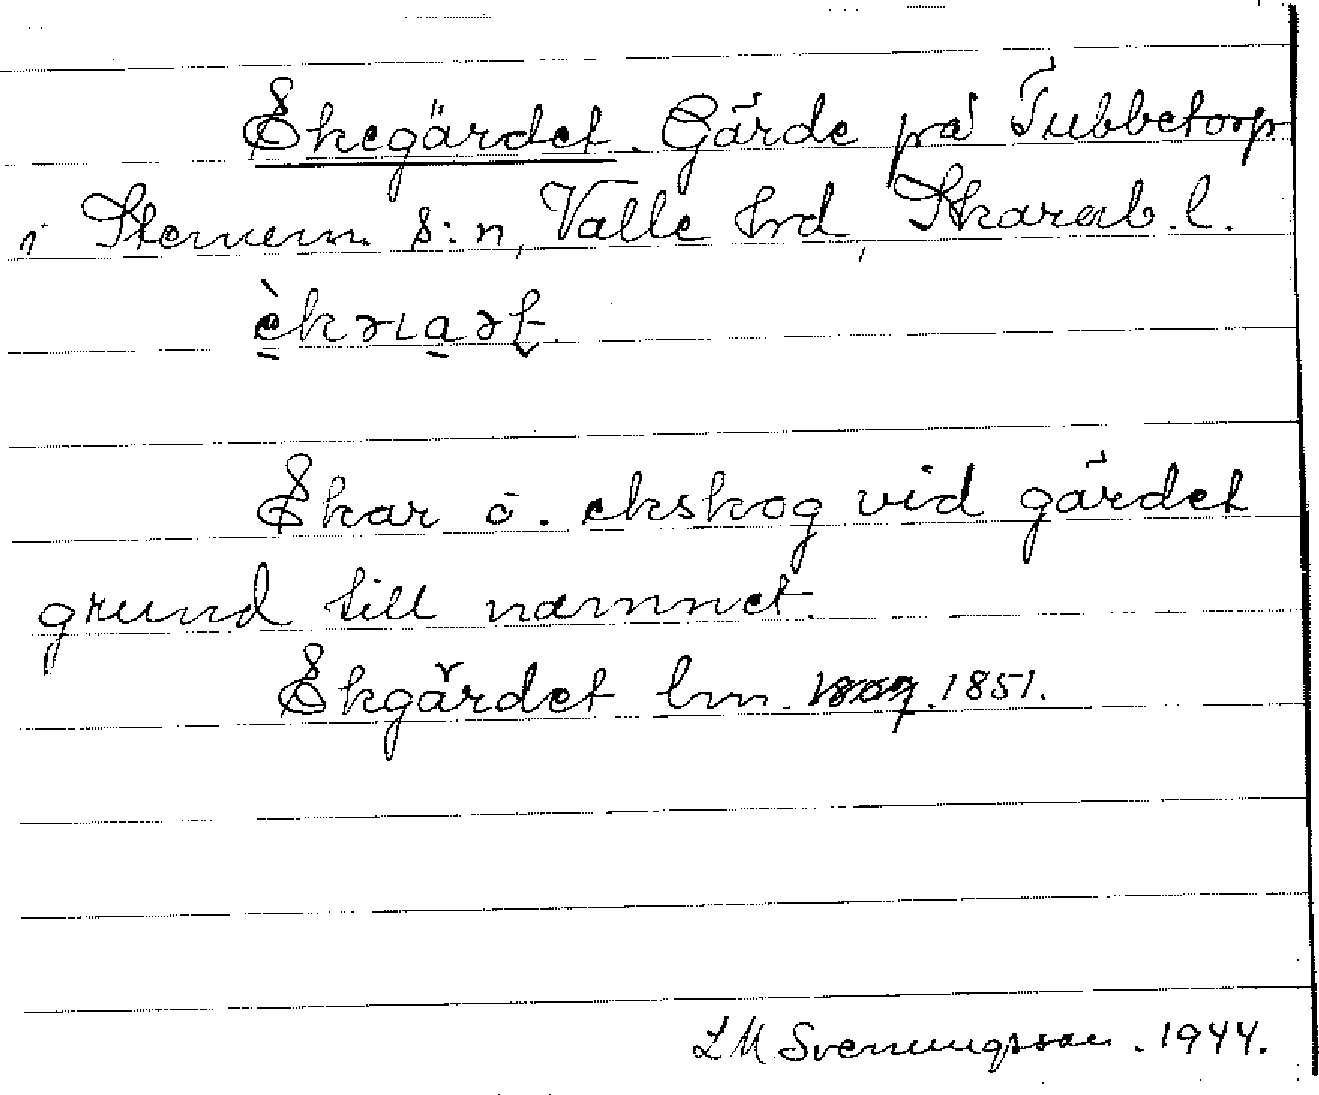 Ekegärdet. Gärde på Tubbetorp
i Stenum s:n, Valle hrd, Skarab. l.
Ekar o. ekskog vid gärdet
grund till namnet.
Ekgärdet lm. 1851.
LM Svenungsson. 1944.